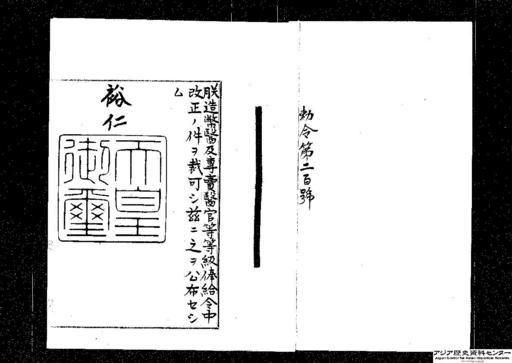 勅令第二百號
朕造幣醫及專賣醫官等等級俸給令中
改正ノ件ヲ裁可シ茲ニ之ヲ公布セシ
ム
裕仁
天皇
御璽
アジア歴史資料センター
Japan Center for Asian Historical Records